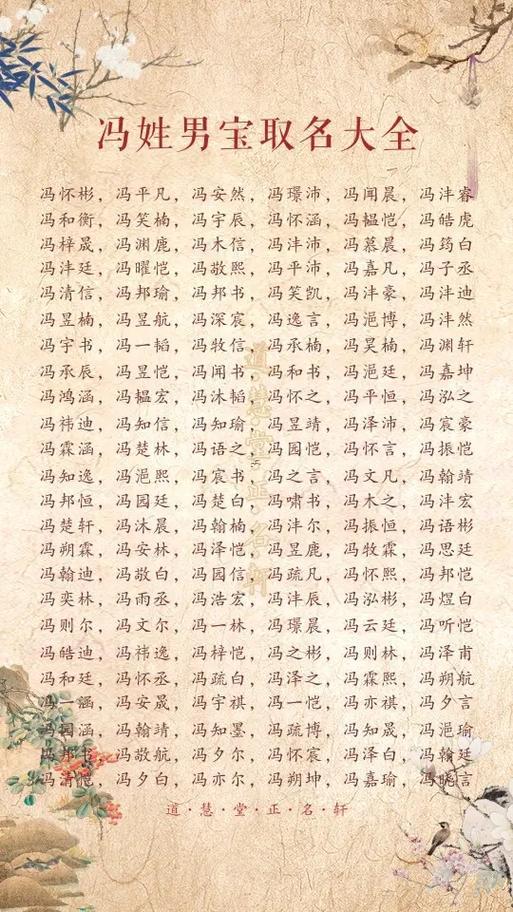 冯姓男宝取名大全
冯怀彬，冯平凡，冯安然，冯璟沛，冯闻晨，冯沣睿
冯和衡，冯笑楠，冯宇辰，冯怀涵，冯韫恺，冯皓虎
冯梓晟，冯渊鹿，冯木信，冯沣沛，冯慕晨，冯筠白
冯沣廷，冯曜恺，冯敬熙，冯平沛，冯嘉凡，冯子丞
冯清信，冯邦瑜，冯邦书，冯笑凯，冯沣豪，冯沣迪
冯昱楠，冯昱航，冯深宸，冯逸言，冯浥博，冯沣然
冯宇书，冯一韬，冯牧信，冯承楠，冯昊楠，冯渊轩
冯承辰，冯昱恺，冯闻书，冯和书，冯浥廷，冯嘉坤
冯鸿涵，冯韫宏，冯沐韬，冯怀之，冯平恒，冯泓之
冯祎迪，冯知信，冯知瑜，冯昱靖，冯泽沛，冯宸豪
冯霖涵，冯楚林，冯语之，冯园恺，冯怀言，冯振恺
冯知逸，冯浥熙，冯宸书，冯之言，冯文凡，冯翰靖
冯邦恒，冯园廷，冯楚白，冯啸书，冯木之，冯沣宏
冯楚轩，冯沐晨，冯翰楠，冯沣尔，冯振恒，冯语彬
冯朔霖，冯安林，冯泽恺，冯昱鹿，冯牧霖，冯思廷
冯翰迪，冯敬白，冯园信，冯疏凡，冯怀熙，冯邦恺
冯奕林，冯雨丞，冯浩宏，冯沣辰，冯泓彬，冯煜白
冯则尔，冯文尔，冯一林，冯璟晨，冯云廷，冯听恺
冯皓迪，冯祎逸，冯梓恺，冯之彬，冯则林，冯泽甫
冯和廷，冯怀丞，冯疏白，冯泽之，冯霖熙，冯朔航
冯一涵，冯安晟，冯宇祺，冯一恺，冯亦祺，冯夕言
冯园涵，冯翰靖，冯知墨，冯疏博，冯知晟，冯浥瑜
冯邦书，冯敬航，冯夕尔，冯怀宸，冯泽白，冯翰廷
冯清恺，冯夕白，冯亦尔，冯朔坤，冯嘉瑜，冯晓言
道·慧·堂·正·名·轩
道慧堂正名轩